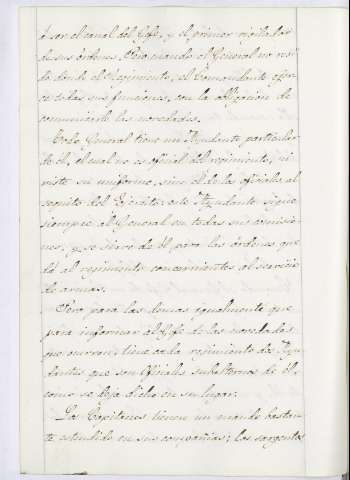 á ser el canal del Gefe, y el primer
de sus órdenes. Pero cuando el General no resi-
de donde el Regimiento, el Comandante ejer-
ce todas sus funciones, con la obligacion de
comunicarle las novedades.
Todo General tiene un Ayudante particular
de él, el cual no es oficial del regimiento, ni
viste su uniforme, sino el de los oficiales al
séquito del Ejército: este Ayudante sigue
siempre al General en todas sus comisio-
nes, y se sirve de él para las órdenes que
dá al regimiento concernientes al servicio
de armas.
Pero para las demas igualmente que
para informar al Gefe de las novedades
que ocurran, tiene cada regimiento dos Ayu-
dantes que son oficiales subalternos de él,
como se deja dicho en su lugar.
Los Capitanes tienen un mando bastan-
te estendido en sus compañias; los sargentos